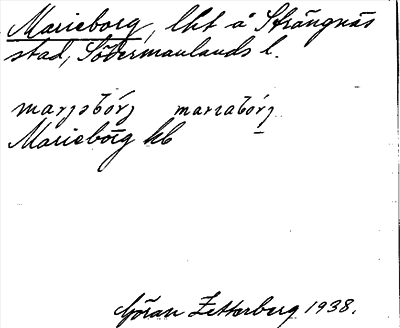 Marieborg, lht å Strängnäs
stad, Södermanlands l.
marjəbórj marıabórj
Marieborg hb
Göran Zetterberg 1938.